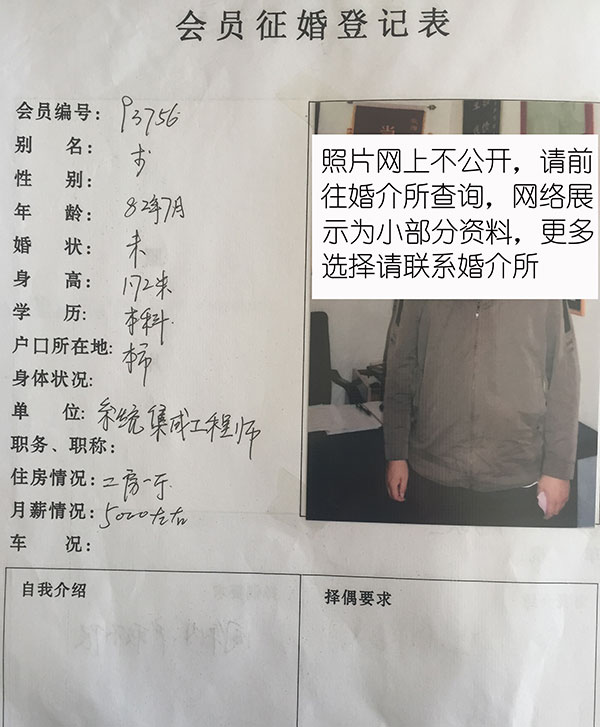 会员征婚登记表
会员编号: P3756
别 名:
性 别:
年 龄: 82年7月
婚 状: 未
身 高: 172米
学 历: 本科
户口所在地: 本市
身体状况:
单 位: 系统集成工程师
职务、职称:
住房情况: 二房一厅
月薪情况: 5000左右
车 况:
照片网上不公开，请前
往婚介所查询，网络展
示为小部分资料，更多
选择请联系婚介所
自我介绍
择偶要求